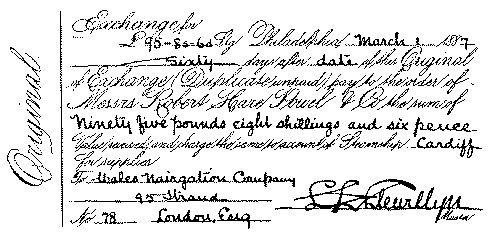 Original
Exchange for
£95-8s-6d Stg Philadelphia March 1 1887
Sixty days after date of this Original
of Exchange (Duplicate unpaid) pay to the order of
Messrs Robert Hare Powel & Co the sum of
Ninety five pounds eight shillings and six pence
Value received and charge the same to account of Steamship Cardiff
for supplies
To Wales Navigation Company
95 Strand
No 78 London, Eng
Llewellyn
Master